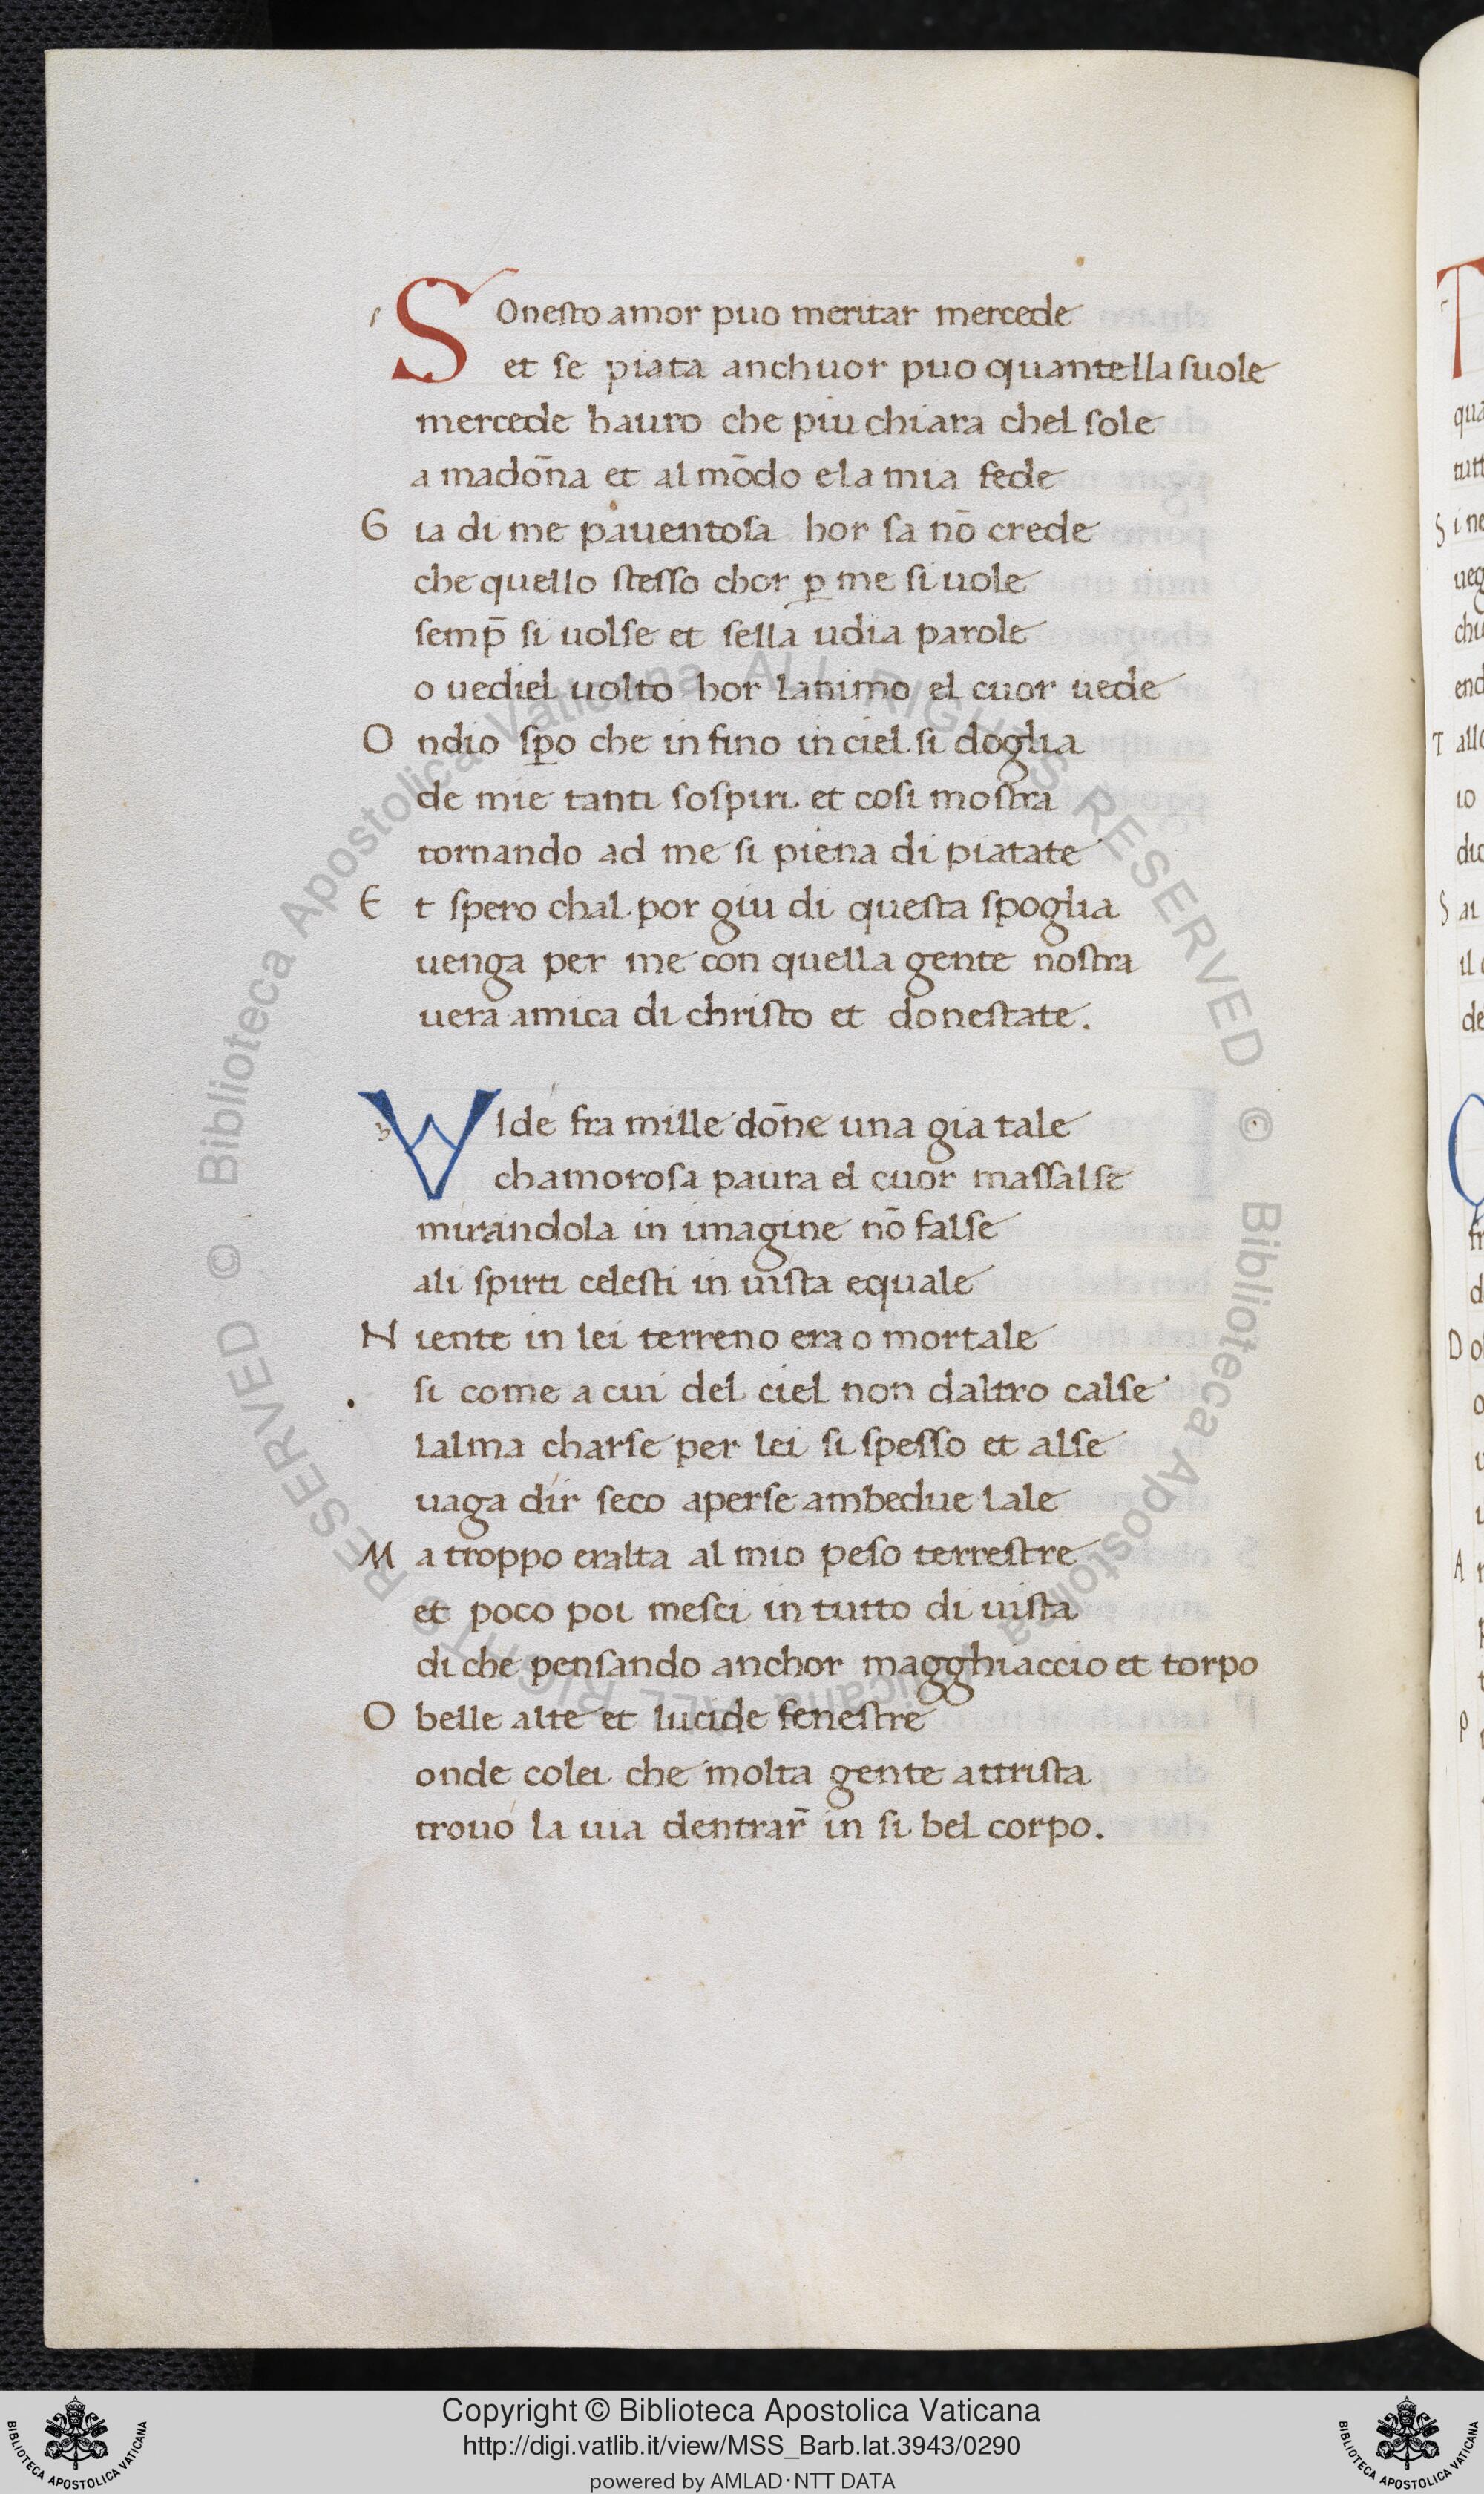 SOnesto amor puo meritar mercede
et se piata anchuor puo quantella suole
mercede hauro che piu chiara chel sole
a madon̄a et al mōdo e la mia fede
G ia di me pauentosa hor sa nō crede
che quello stesso chor ꝑ me si uole
semp̄ si uolse et sella udia parole
o uediel uolto hor lanimo el cuor uede
O ndio sꝑo che infino in ciel si doglia
de mie tanti sospiri et cosi mostra
tornando ad me si piena di piatate
E t spero chal por giu di questa spoglia
uenga per me con quella gente nostra
uera amica di christo et donestate.
VIde fra mille don̄e una gia tale
chamorosa paura el cuor massalse
mirandola in imagine nō false
ali spirti celesti in uista equale
N iente in lei terreno era o mortale
si come a cui del ciel non daltro calse
lalma charse per lei si spesso et alse
uaga dir seco aperse ambedue lale
M a troppo eralta al mio peso terrestre
et poco poi mesci in tutto di uista
di che pensando anchor magghiaccio et torpo
O belle alte et lucide fenestre
onde colei che molta gente attrista
trouo la uia dentrar̄ in si bel corpo.
T
qua
tutt
S i ne
ueg
chu
end
T allo
io
dic
S ai
il
de
fr
d
D o
o
u
A
P
Biblioteca Apostolica Vaticana ALL RIGHTS RESERVED ©
Biblioteca Apostolica Vaticana ALL RIGHTS RESERVED ©
BIBLIOTECA APOSTOLICA VATICANA
Copyright © Biblioteca Apostolica Vaticana
http://digi.vatlib.it/view/MSS_Barb.lat.3943/0290
powered by AMLAD·NTT DATA
BIBLIOTECA APOSTOLICA VATICANA